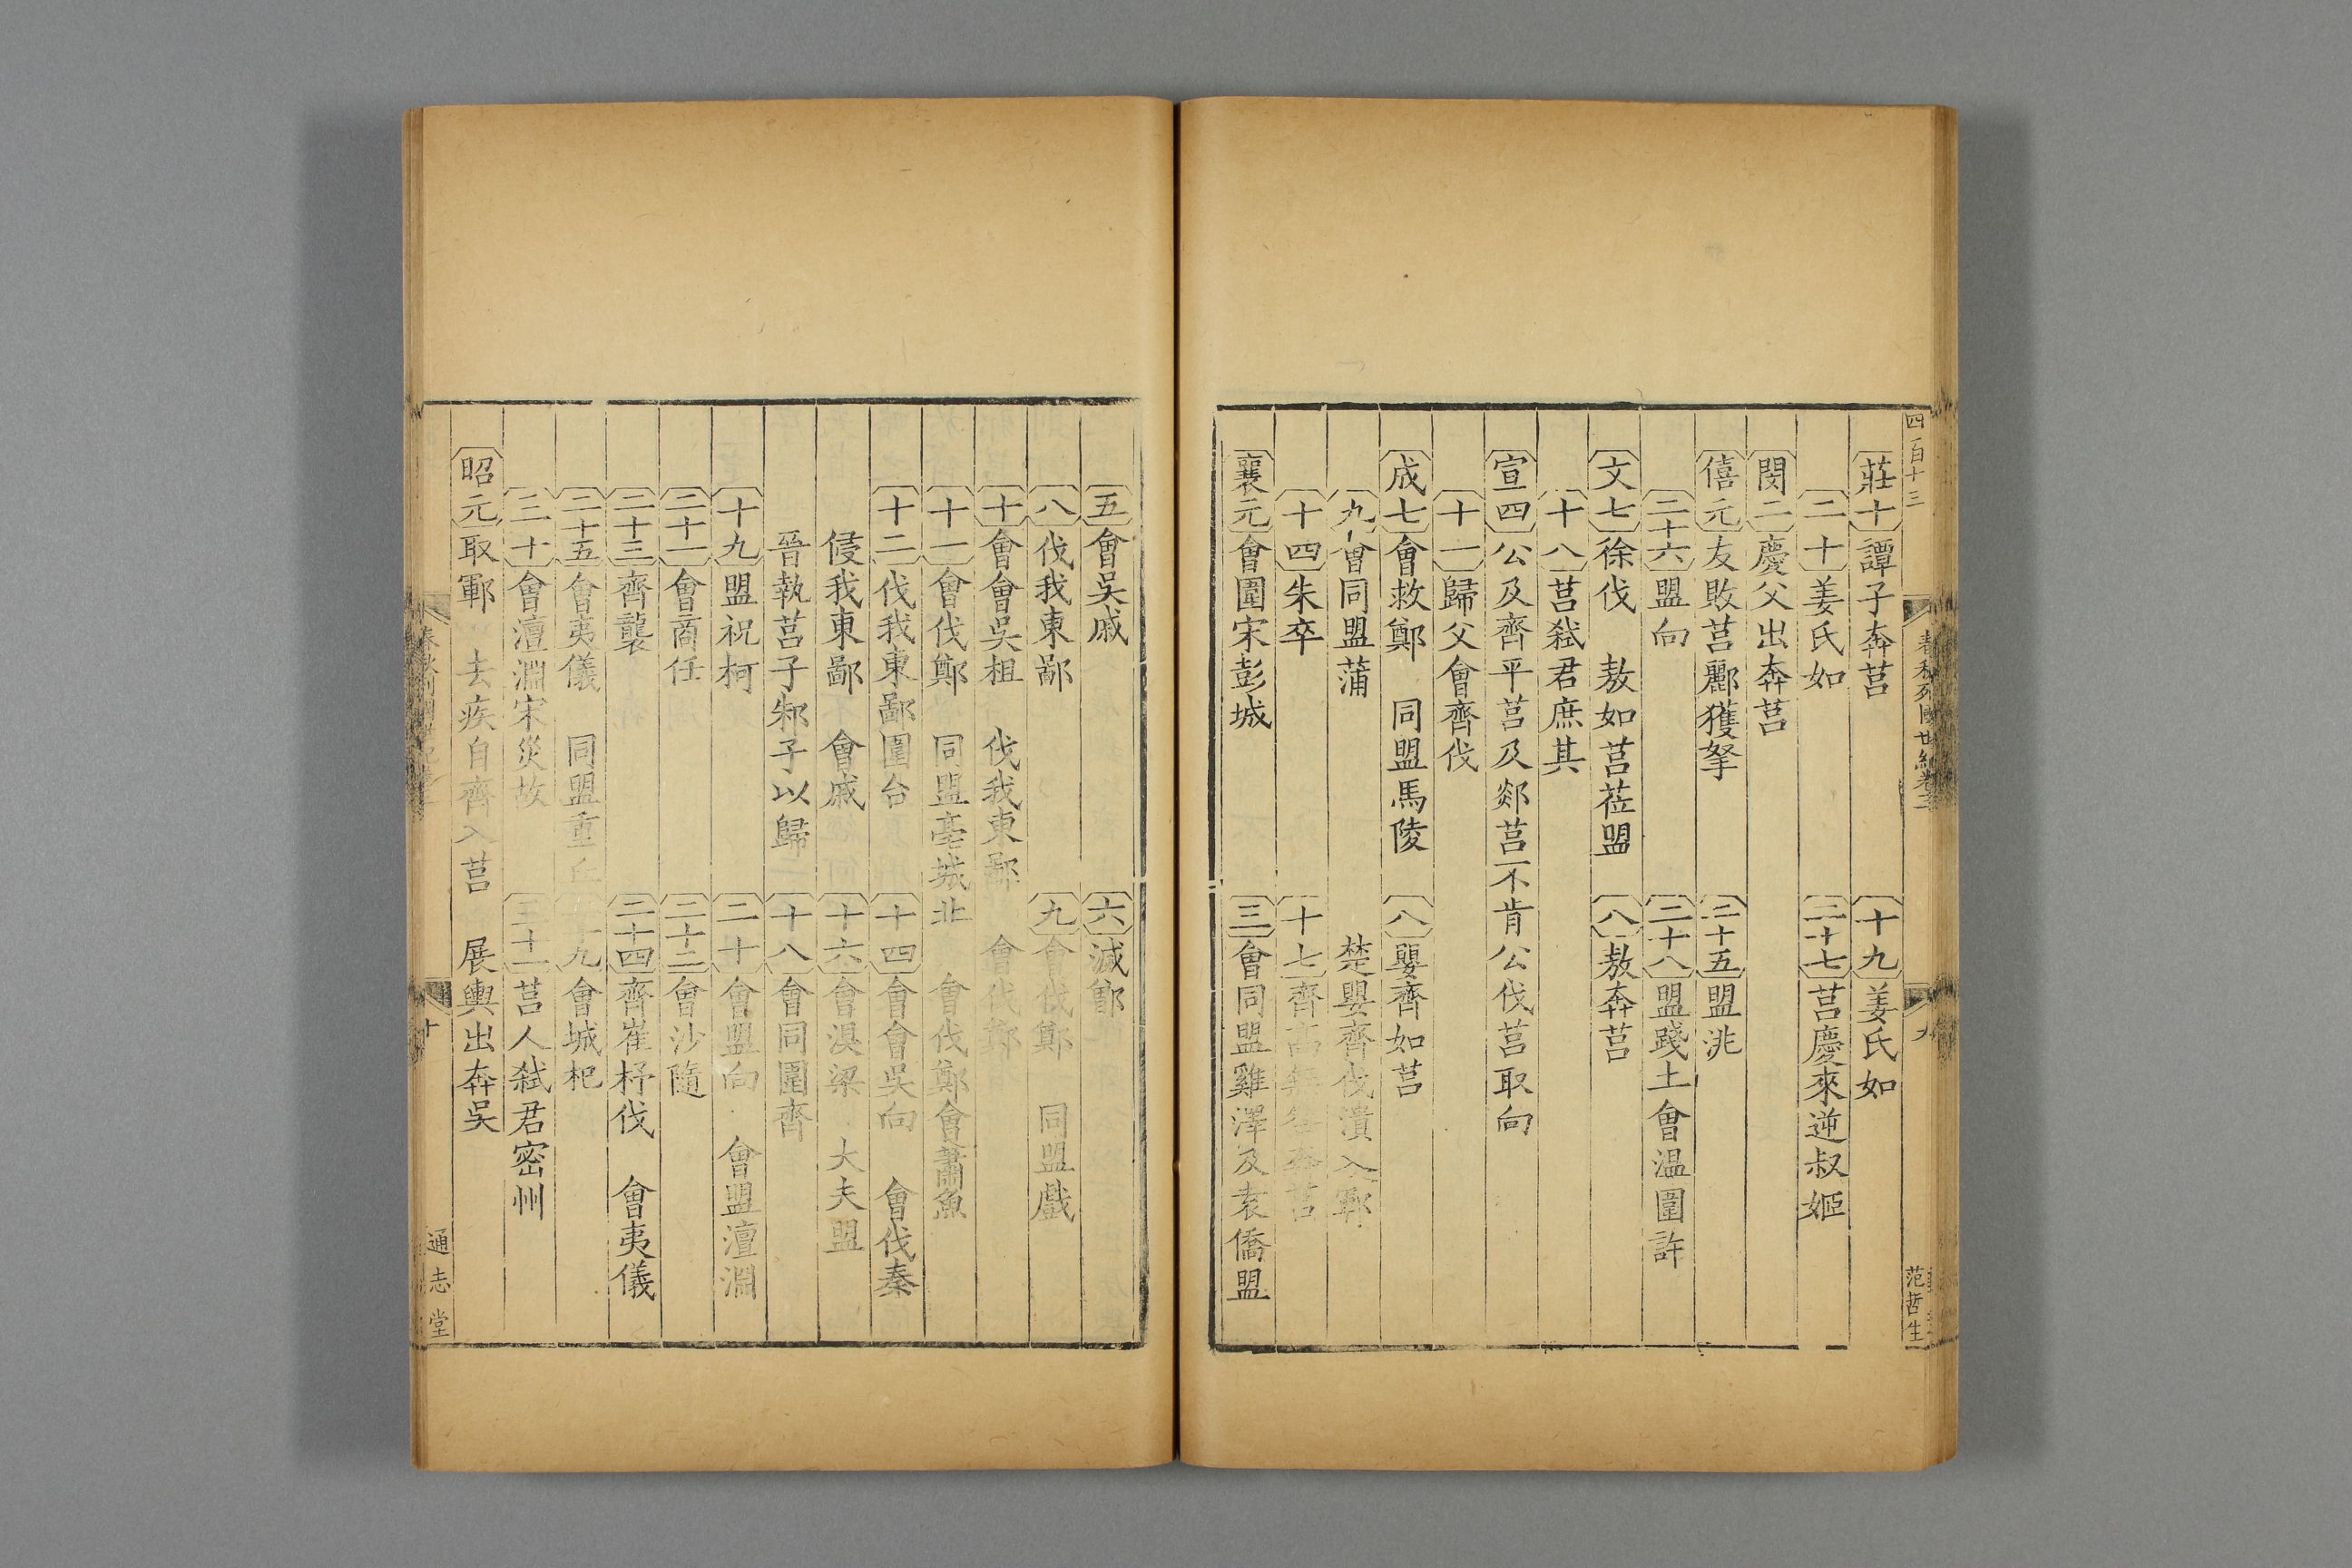 四百十三
春秋列國世紀
九
范哲生
莊十譚子奔莒 十九姜氏如
二十姜氏如 二十七莒慶來逆叔姬
閔二慶父出奔莒
僖元友敗莒酈獲拏 二十五盟洮
二十六盟向 二十八盟踐土會温圍許
文七徐伐 敖如莒莅盟 八敖奔莒
十八莒弑君庶其
宣四公及齊平莒及郯莒不肯公伐莒取向
十一歸父會齊伐
成七會救鄭 同盟馬陵 八嬰齊如莒
九會同盟蒲 楚嬰齊伐潰入鄆
十四朱卒 十七齊高無咎奔莒
襄元會圍宋彭城 三會同盟雞澤及袁僑盟
五會吳戚 六滅鄫
八伐我東鄙 九會伐鄭 同盟戲
十會會吳柤 伐我東鄙 會伐鄭
十一會伐鄭 同盟亳城北 會伐鄭會蕭魚
十二伐我東鄙圍台 十四會會吳向 會伐秦
侵我東鄙 會戚 十六會湨梁 大夫盟
晉執莒子邾子以歸 十八會同圍齊
十九盟祝柯 二十會盟向 會盟澶淵
二十一會商任 二十二會沙隨
二十三齊襲 二十四齊崔杼伐 會夷儀
二十五會夷儀 同盟重丘 十九會城杞
三十會澶淵宋災故 三十一莒人弑君密州
昭元取鄆 去疾自齊入莒 展輿出奔吳
春秋
十
通志堂